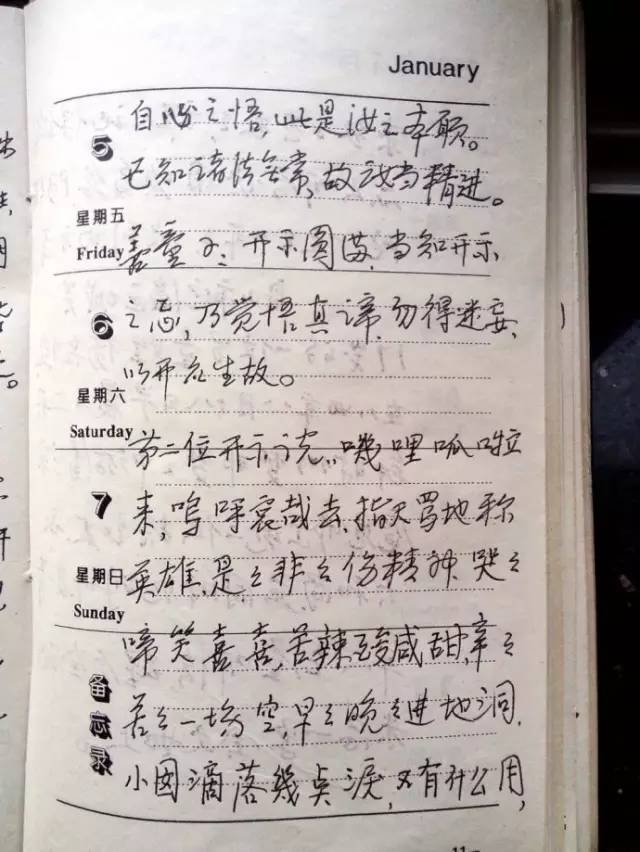 January
自心之悟,此是汝之本愿。
5
已知诸法无常,故汝当精进。
星期五
Friday
善童子:开示圆满,当知开示
6
之志,乃觉悟真谛,勿得迷妄,
以开众生故。
星期六
Saturday
第二位开示说:嘰哩呱啦
7
来,鸣呼哀哉去,指天骂地称
星期日
英雄,是是非非伤精神,哭哭
Sunday
啼笑喜喜,苦辣酸咸甜,辛辛
备忘录
苦苦一场空,早早晚晚进地洞,
小園滴落幾点淚,又有什么用,